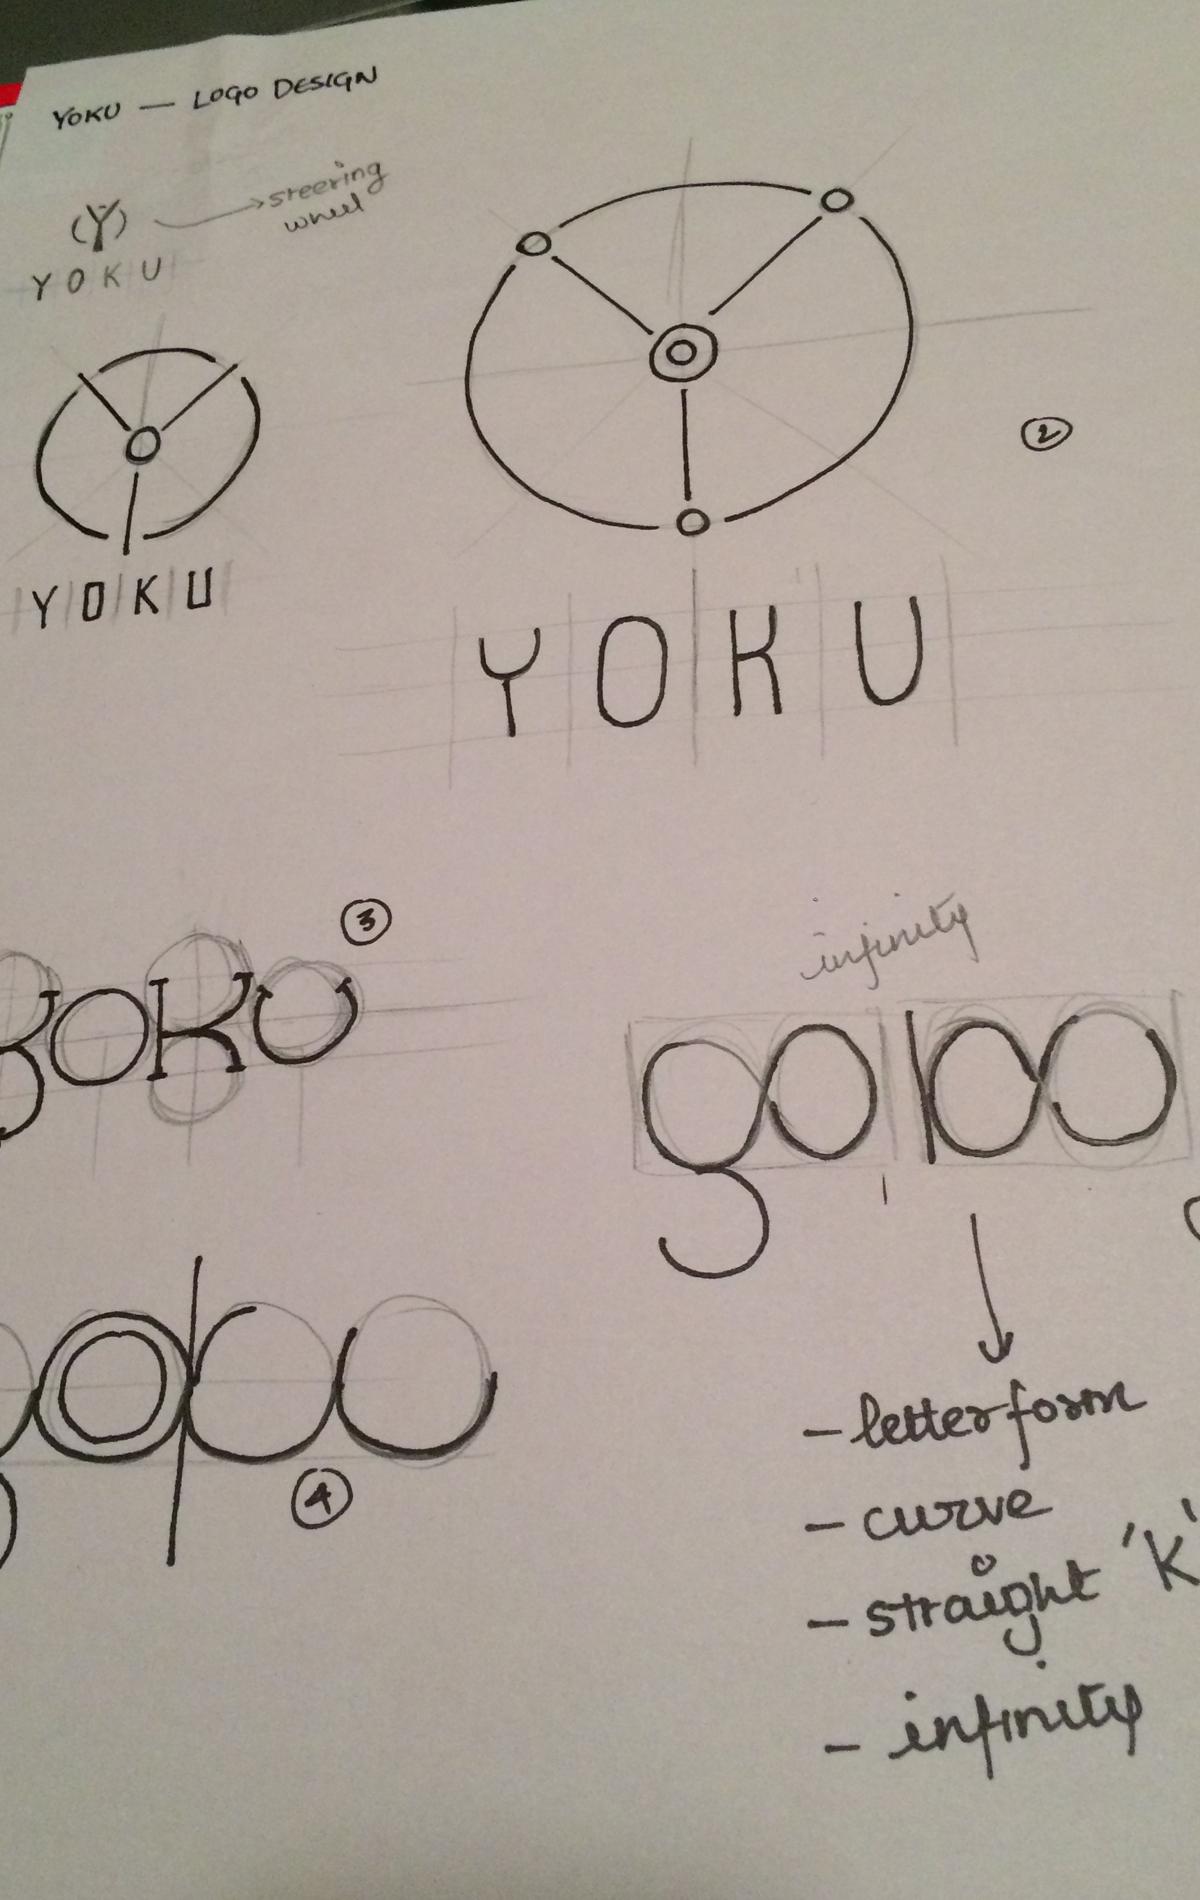 YOKU — LOGO DESIGN
(Y)
steering
wheel
Y O K U
Y O K U
②
Y O K U
③
YOKU
infinity
yoku
④
yoku
– letterform
– curve
– straight 'K'
– infinity